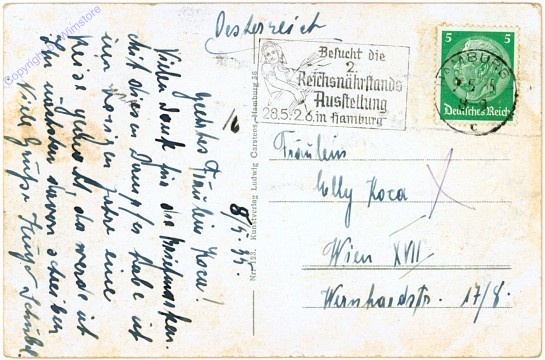 Copyright by Mimstore
Oesterreich
Besucht die
2.
Reichsnährstands
Ausstellung
28.5.-2.6. in Hamburg
5 5
HAMBURG
Deutsches Reich
c
8/5.35.
Geehrtes Fräulein Koca!
Vielen Dank für die Briefmarken.
Mit diesem Dampfer habe ich
im vorigen Jahre eine
Reise gemacht, da werde ich
Ihnen nächstens davon schreiben
Viele Grüße Hugo
Nr. 123. Kunstverlag Ludwig Carstens, Hamburg 36
Fräulein
Elly Koca
Wien XVII
Wernhardstr. 17/8.